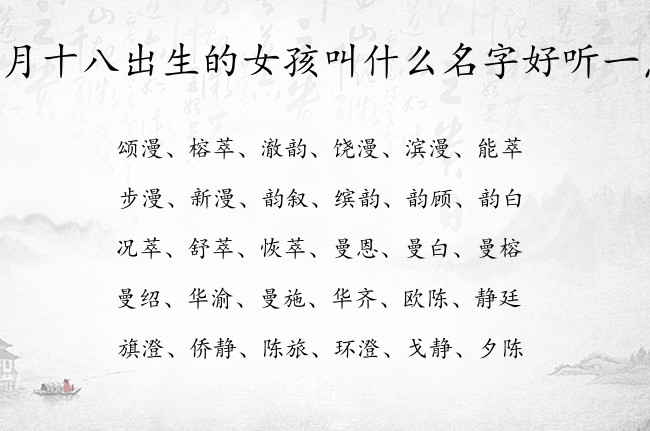 月十八出生的女孩叫什么名字好听一
颂漫、榕萃、澈韵、饶漫、滨漫、能萃
步漫、新漫、韵叙、缤韵、韵顾、韵白
况萃、舒萃、恢萃、曼恩、曼白、曼榕
曼绍、华渝、曼施、华齐、欧陈、静廷
旗澄、侨静、陈旅、环澄、戈静、夕陈